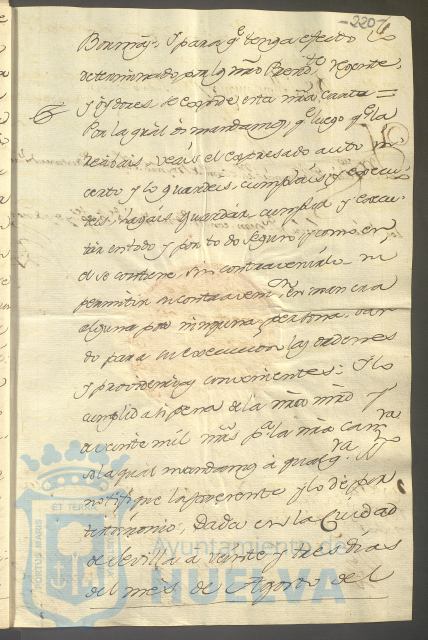 -220-
Bormujos, y para qe tenga efecto lo
determinado por los nros Presidte, Regente,
y oydores se expide esta nra carta =
Por la qual os mandamos, qe luego qe la
recibais veais el expresado auto in
certo y lo guardeis, cumplais y execu
teis, hagais guardar, cumplir y execu
tar en todo y por todo segun y como en
el se contiene sin contravenirlo ni
permitir se contravenga en manera
alguna por ninguna persona, dan
do para su execucion las ordenes
y providencias convenientes: Y lo
cumplid asi pena de la nra mrd y
de veinte mil mrs pa la nra camra
so la qual mandamos a qualqr
notifique la presente y lo de por
testimonio. Dada en la Ciudad
de Sevilla a veinte y tres dias
del mes de Agosto de
Ayuntamiento de
HUELVA